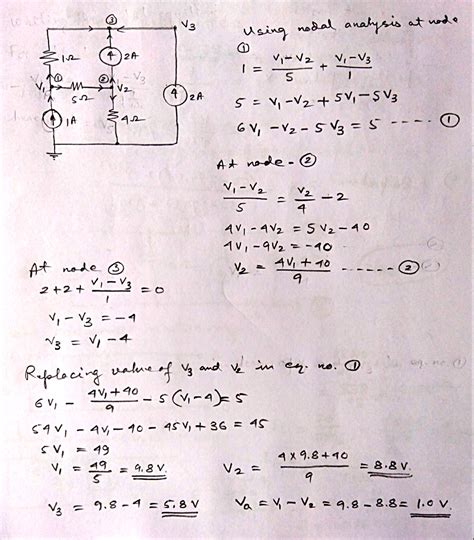 ③
V3
1Ω
2A
V1
①
②
V2
5Ω
2A
1A
4Ω
Using nodal analysis at node
①
1 = V1-V2/5 + V1-V3/1
5 = V1-V2 + 5V1-5V3
6V1 - V2 - 5V3 = 5 ---- ①
At node - ②
V1-V2/5 = V2/4 - 2
4V1-4V2 = 5V2-40
4V1-9V2 = -40
V2 = 4V1+40/9 ------ ②
At node ③
2+2+ V1-V3/1 = 0
V1 - V3 = -4
V3 = V1 - 4
Replacing value of V3 and V2 in eq. no. ①
6V1 - 4V1+40/9 - 5(V1-4) = 5
54V1 - 4V1 - 40 - 45V1 + 36 = 45
5V1 = 49
V1 = 49/5 = 9.8 V.
V2 = 4×9.8+40/9 = 8.8 V.
V3 = 9.8-4 = 5.8 V
Va = V1 - V2 = 9.8 - 8.8 = 1.0 V.